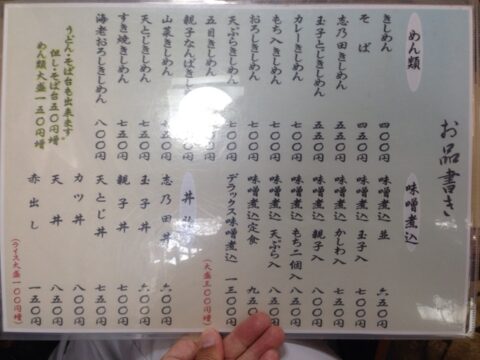 お品書き
めん類
きしめん 四五〇円
そば 五〇〇円
志乃田きしめん 五五〇円
玉子とじきしめん 五五〇円
カレーきしめん 七〇〇円
もち入きしめん 七〇〇円
おろしきしめん 七〇〇円
天ぷらきしめん 七〇〇円
五目きしめん
親子なんばきしめん
山菜きしめん 七五〇円
天とじきしめん 七五〇円
すき焼きしめん 七五〇円
海老おろしきしめん 八〇〇円
うどん・そば台も出来ます。
但し・そば台五〇円増
めん類大盛一五〇円増
味噌煮込
味噌煮込 並 六五〇円
味噌煮込 玉子入 七〇〇円
味噌煮込 かしわ入 七五〇円
味噌煮込 親子入 八〇〇円
味噌煮込 もち二個入 八〇〇円
味噌煮込 天ぷら入 八五〇円
味噌煮込定食 九五〇円
デラックス味噌煮込 一三〇〇円
(大盛三〇〇円増)
丼
志乃田丼 六〇〇円
玉子丼 六〇〇円
親子丼 七〇〇円
天とじ丼 七五〇円
カツ丼 八五〇円
天丼 八五〇円
赤出し 一五〇円
(ライス大盛一〇〇円増)